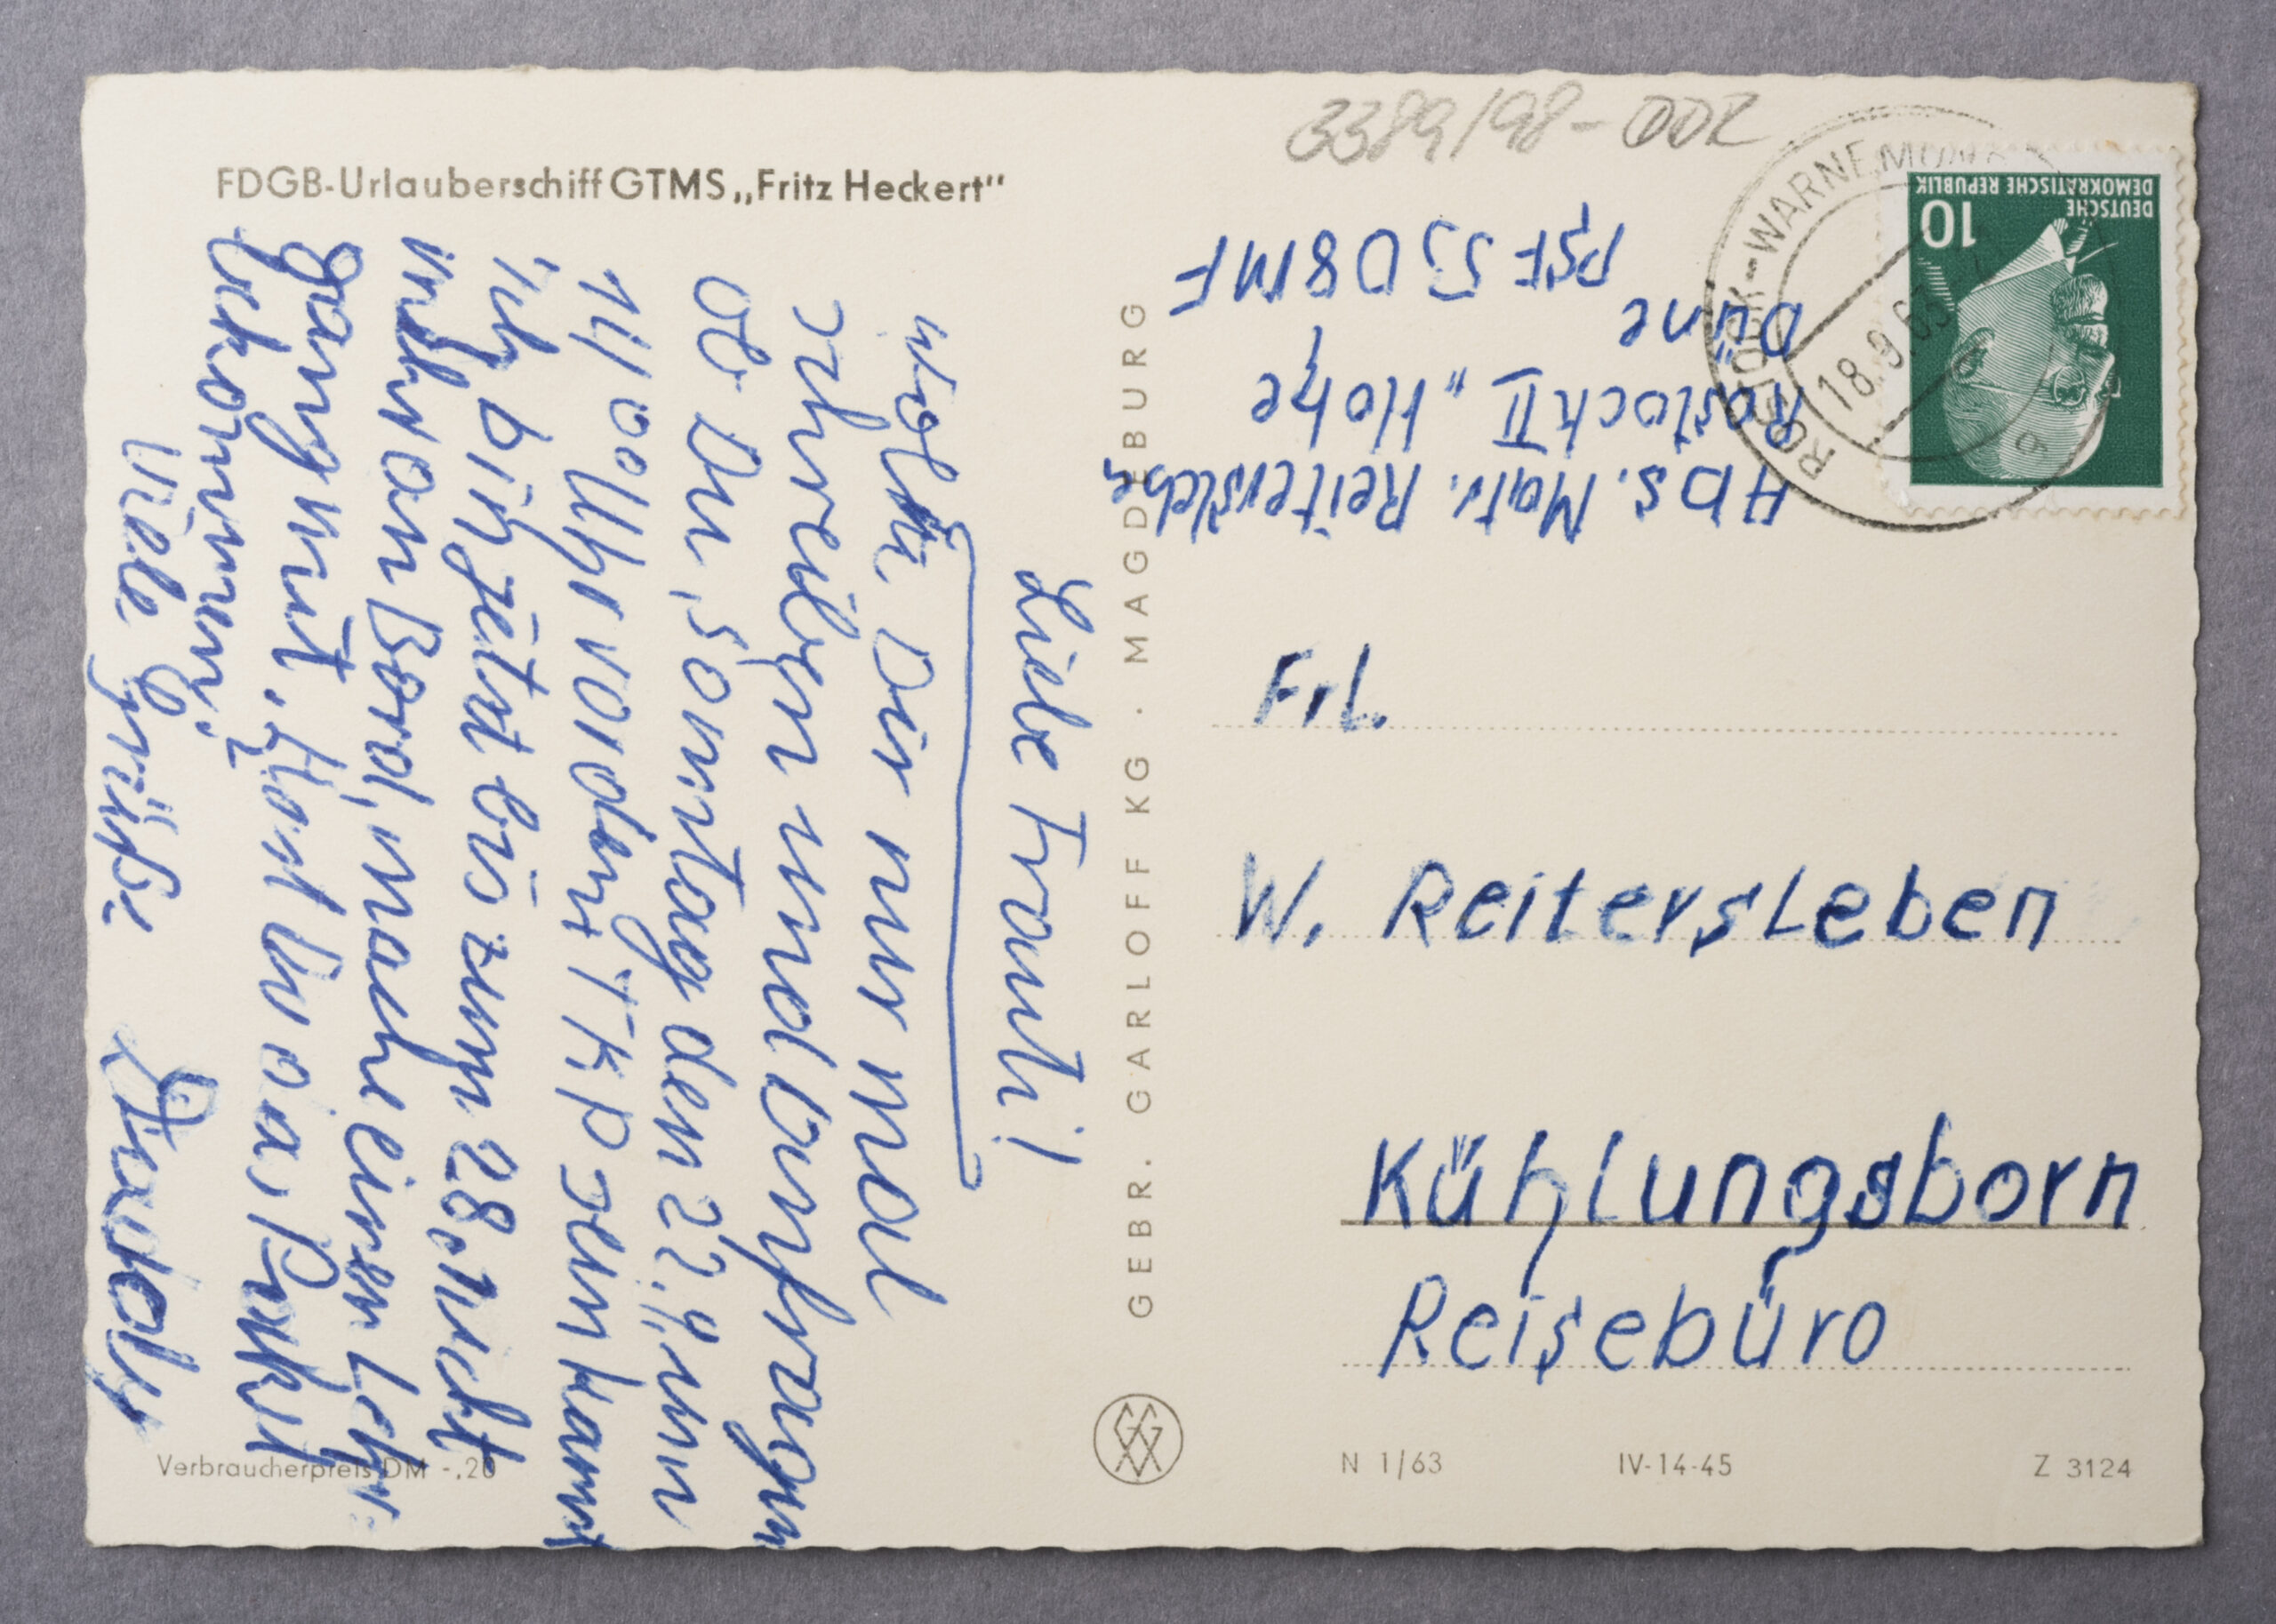 FDGB-Urlauberschiff GTMS „Fritz Heckert"
3389/98-DDR
ROSTOCK-WARNEMÜNDE
18.9.63
DEUTSCHE
DEMOKRATISCHE REPUBLIK
10
Abs. Matr. Reitersleben
Rostock II „Hohe
Düne
PSF 5308 MF
Liebe Traudi!
wollte Dir nur mal
schreiben und anfragen
ob Du, Sonntag den 22.9. um
14 00 Uhr vor dem TKP sein kannst
ich bin jetzt bis zum 28. nicht
mehr an Bord, mache einen Lehr-
gang mit. Hast Du das Paket
bekommen?
Viele Grüße
GEBR. GARLOFF KG. MAGDEBURG
Frl.
W. Reitersleben
Kühlungsborn
Reisebüro
Verbraucherpreis DM -,20
N 1/63
IV-14-45
Z 3124